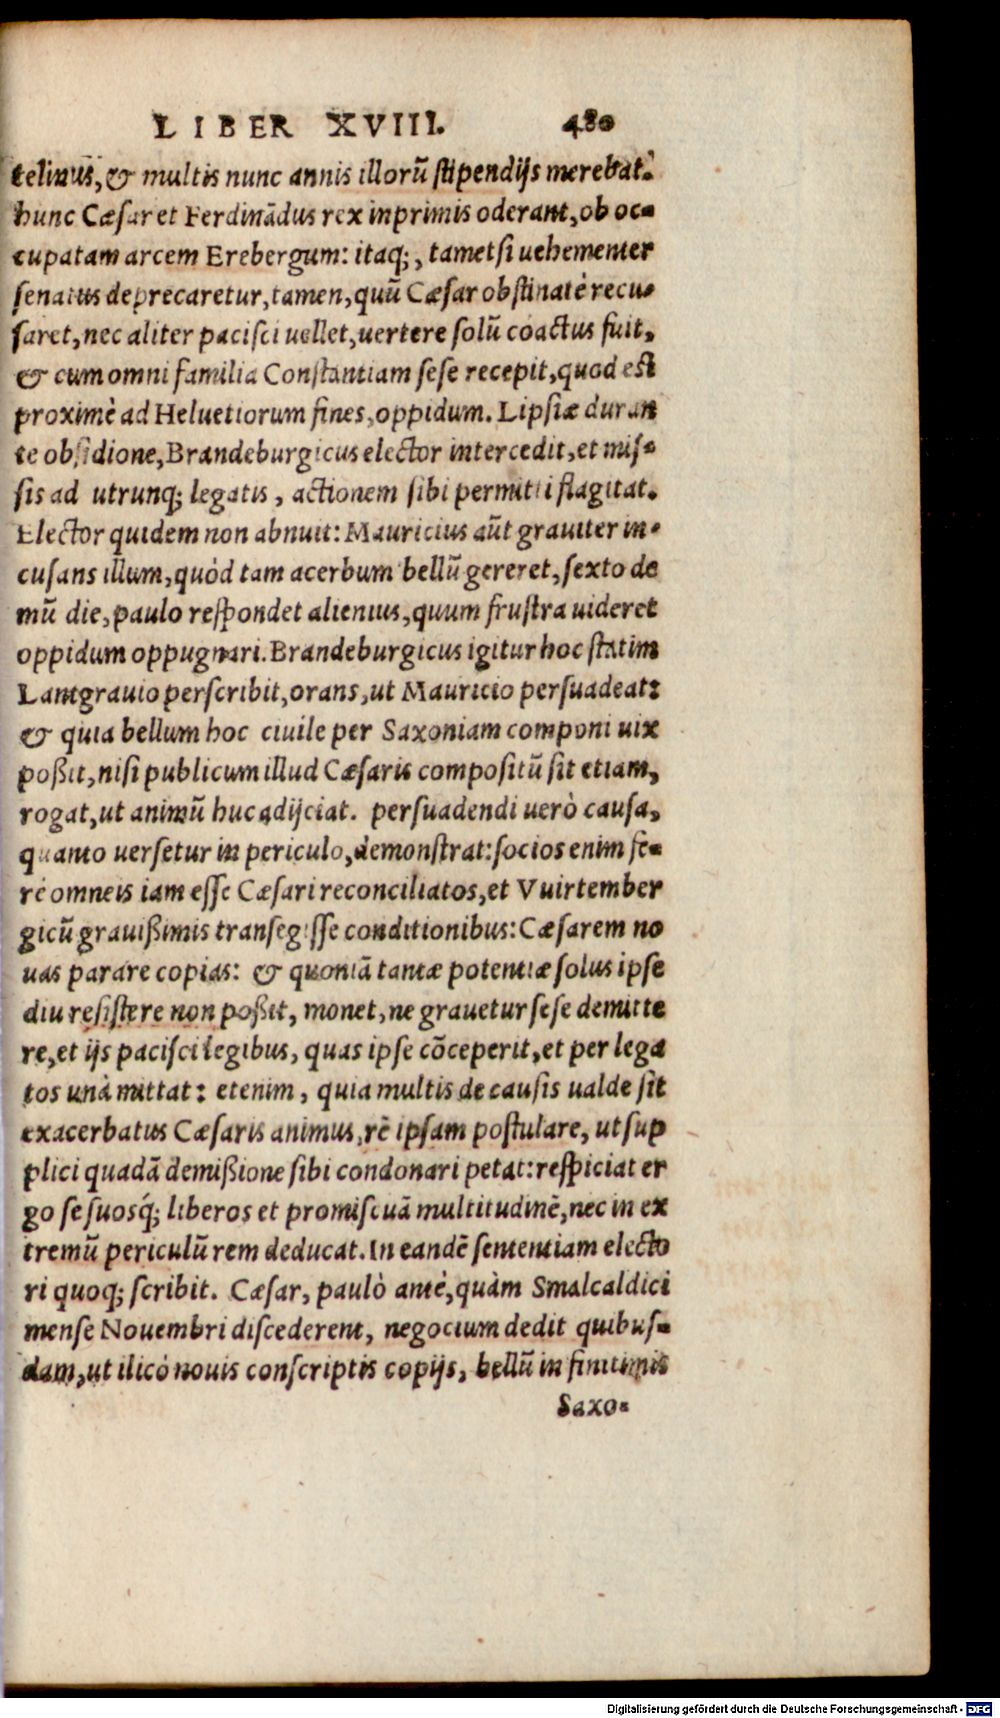 LIBER XVIII. 480
telinus, & multis nunc annis illorũ stipendijs merebat.
hunc Cæsar et Ferdinãdus rex inprimis oderant, ob oc-
cupatam arcem Erebergum: itaq;, tametsi uehementer
senatus deprecaretur, tamen, quũ Cæsar obstinatè recu-
saret, nec aliter pacisci uellet, uertere solũ coactus fuit,
& cum omni familia Constantiam sese recepit, quod est
proximè ad Heluetiorum fines, oppidum. Lipsiæ duran
te obsidione, Brandeburgicus elector intercedit, et mis-
sis ad utrunq; legatis, actionem sibi permitti flagitat.
Elector quidem non abnuit: Mauricius aũt grauiter in-
cusans illum, quòd tam acerbum bellũ gereret, sexto de
mũ die, paulo respondet alienius, quum frustra uideret
oppidum oppugnari. Brandeburgicus igitur hoc statim
Lantgrauio perscribit, orans, ut Mauricio persuadeat:
& quia bellum hoc ciuile per Saxoniam componi uix
poßit, nisi publicum illud Cæsaris compositũ sit etiam,
rogat, ut animũ huc adijciat. persuadendi uerò causa,
quanto uersetur in periculo, demonstrat: socios enim fe-
rè omneis iam esse Cæsari reconciliatos, et Vuirtember
gicũ grauißimis transegisse conditionibus: Cæsarem no
uas parare copias: & quoniã tantæ potentiæ solus ipse
diu resistere non poßit, monet, ne grauetur sese demitte
re, et ijs pacisci legibus, quas ipse cõceperit, et per lega
tos unà mittat: etenim, quia multis de causis ualde sit
exacerbatus Cæsaris animus, rẽ ipsam postulare, ut sup
plici quadã demißione sibi condonari petat: respiciat er
go se suosq́; liberos et promiscuã multitudinẽ, nec in ex
tremũ periculũ rem deducat. In eandẽ sententiam electo
ri quoq; scribit. Cæsar, paulò antè, quàm Smalcaldici
mense Nouembri discederent, negocium dedit quibus-
dam, ut ilicò nouis conscriptis copijs, bellũ in finitimis
Saxo-
Digitalisierung gefördert durch die Deutsche Forschungsgemeinschaft - DFG